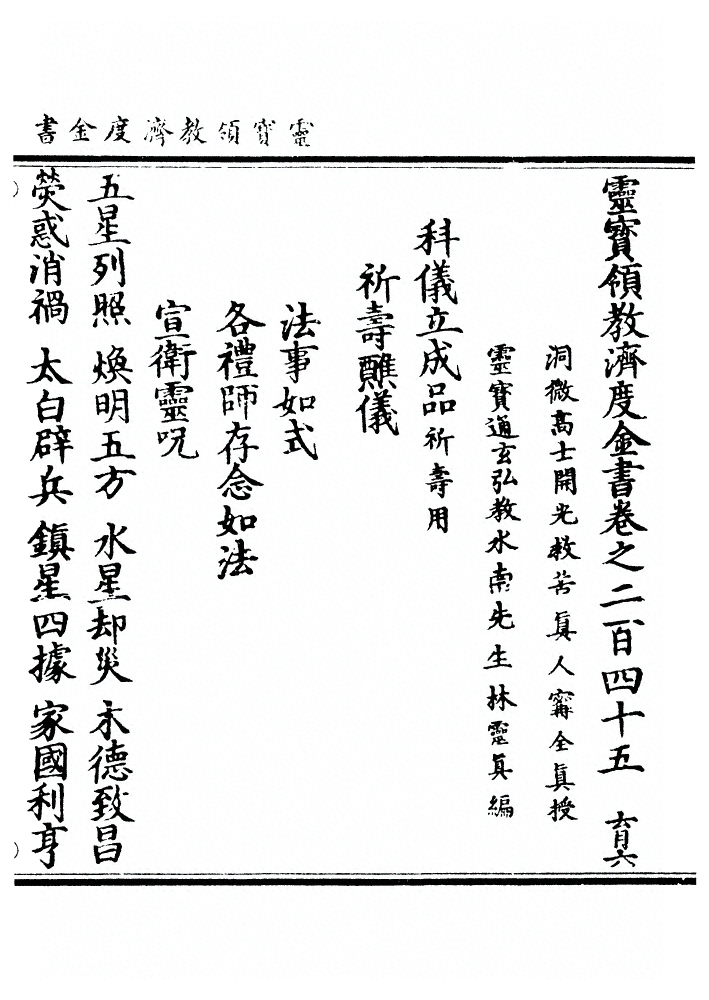 靈寶領教濟度金書
靈寶領教濟度金書卷之二百四十五 育六
洞微高士開光救苦眞人甯全眞授
靈寶通玄弘教水南先生林靈眞編
科儀立成品祈壽用
祈壽醮儀
法事如式
各禮師存念如法
宣衛靈呪
五星列照 煥明五方 水星却災 木德致昌
熒惑消禍 太白辟兵 鎮星四據 家國利亨